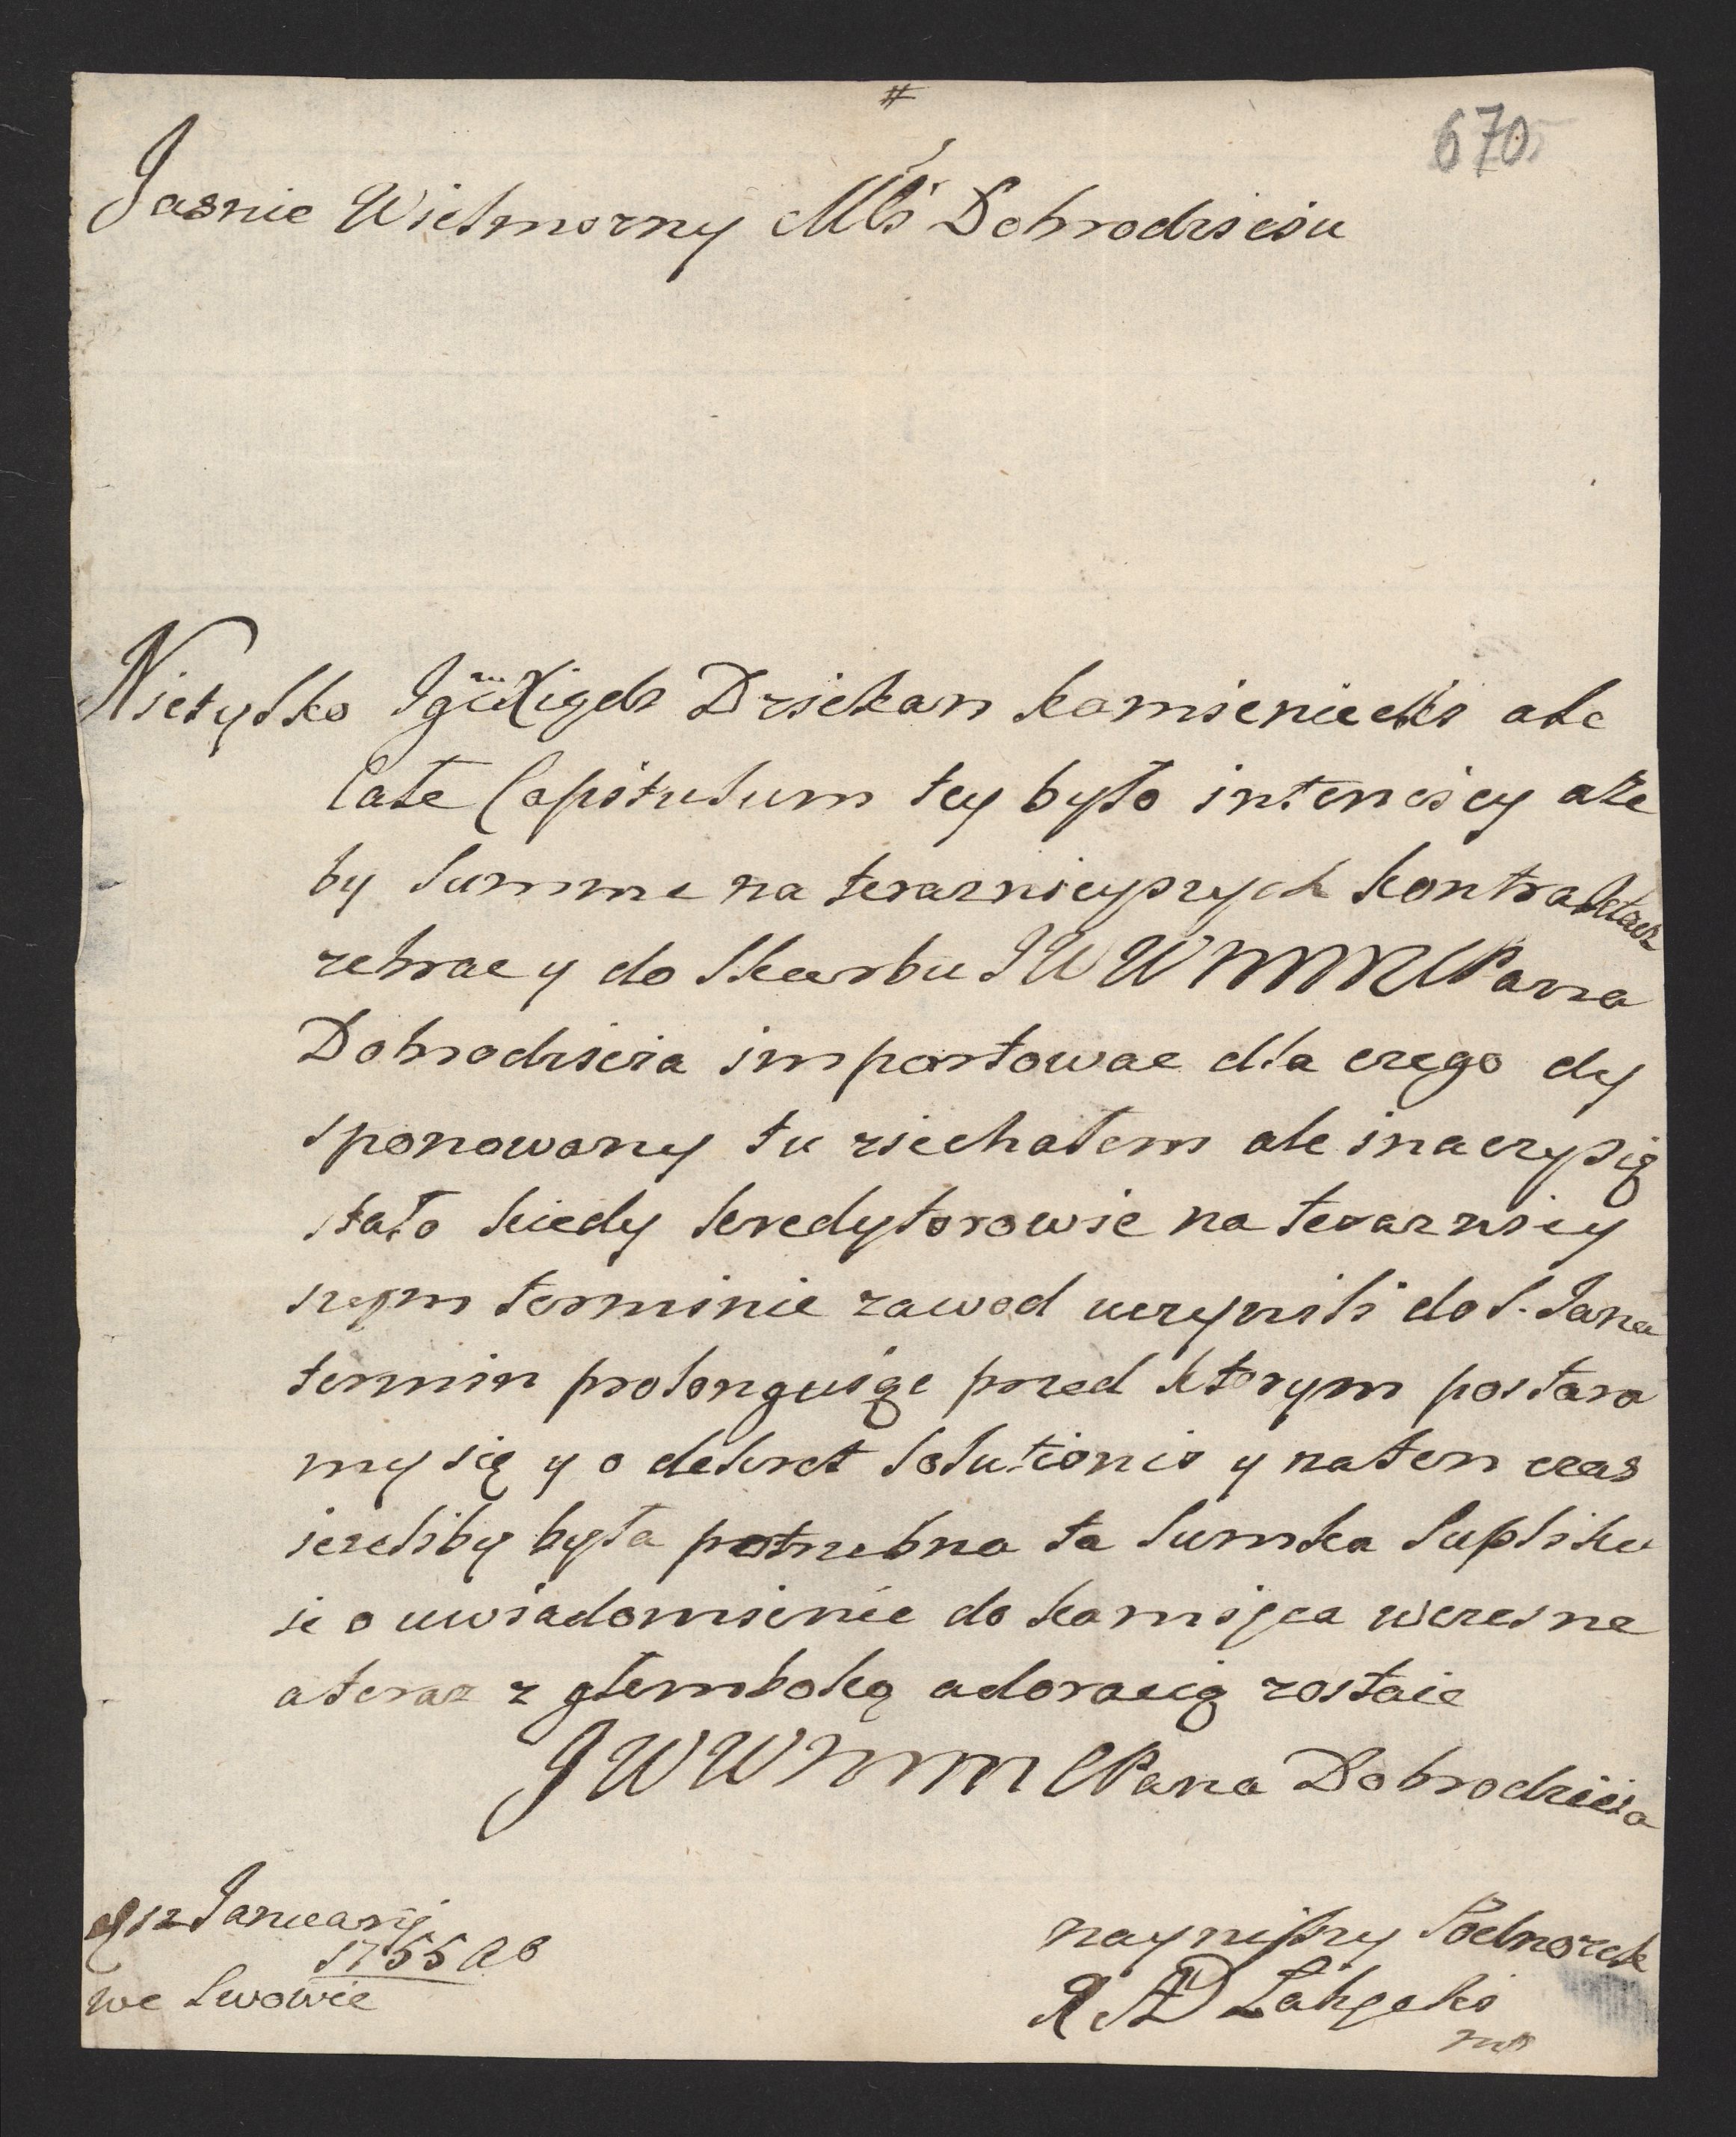 #
670
Jasnie Wielmozny Mści Dobrodzieiu
Nietylko Jgmć Xiądz Dziekan Kamieniecki ale
Całe Capitulum tey było intenciey aże
by Summe na teraznieyszych Kontraktach
zebrac y do Skarbu JWWMM Pana
Dobrodzieia importowac dla czego dy
sponowany tu ziechałem ale inaczy się
stało kiedy kredytorowie na terazniey
szym terminie zawod uczynili do S. Jana
termin prolonguiąc przed ktorym postara
my się y o dekret Solutionis y naten czas
iezeliby była potrzebna ta Sumka Supliku
ie o uwiadomienie do Kamięca wczesne
a teraz z głemboką adoracią zostaie
JWWMM Pana Dobrodzieia
d 12 Januarij
1755
we Lwowie
naynizszy Podnozek
X
mp